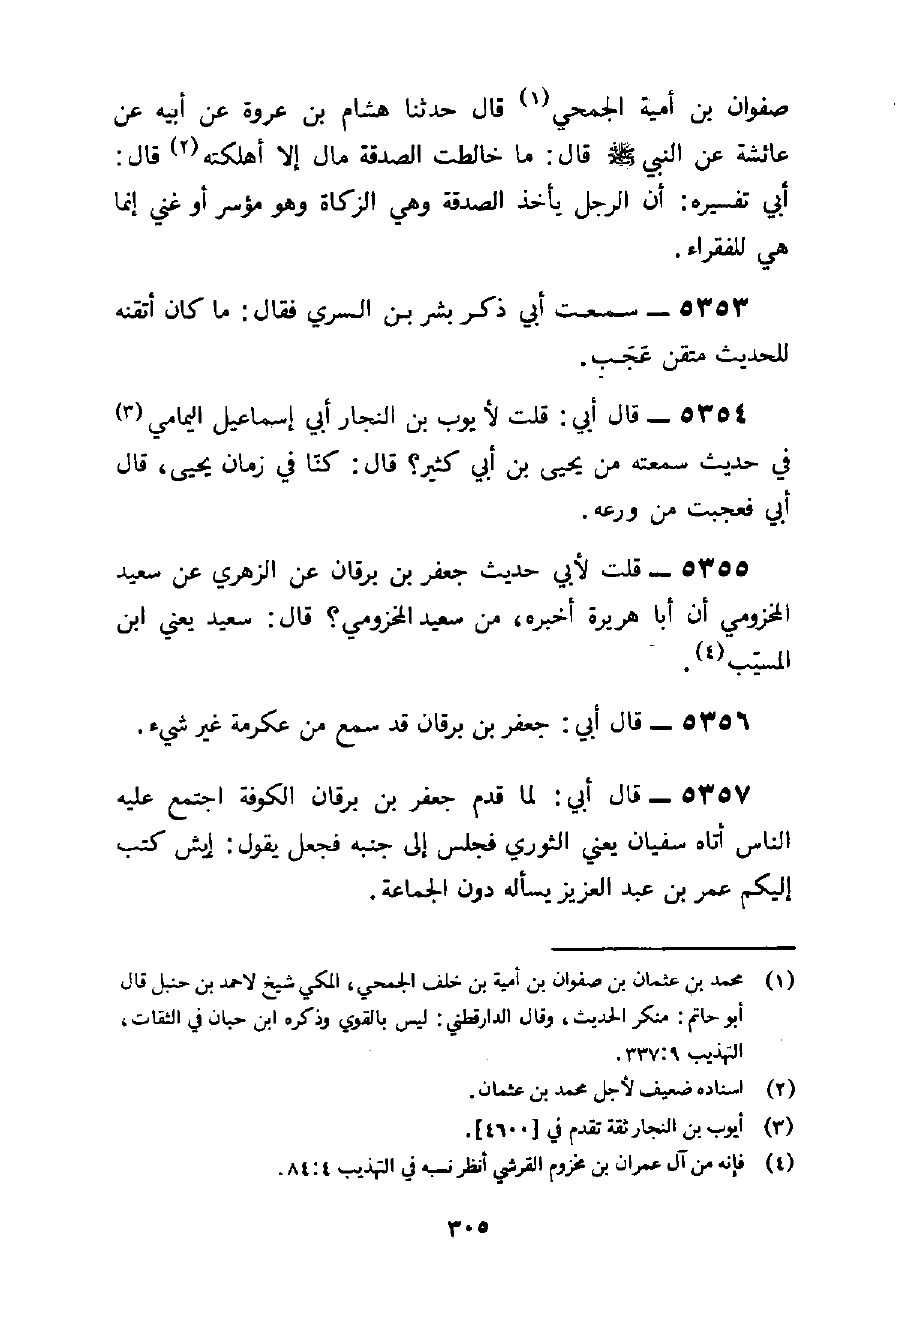 صفوان بن أمية الجمحي(١) قال حدثنا هشام بن عروة عن أبيه عن
عائشة عن النبي ﷺ قال: ما خالطت الصدقة مال إلا أهلكته(٢) قال:
أبي تفسيره: أن الرجل يأخذ الصدقة وهي الزكاة وهو مؤسر أو غني إنما
هي للفقراء.
٥٣٥٣ ــ سمعت أبي ذكر بشر بن السري فقال: ما كان أتقنه
للحديث متقن عَجَب.
٥٣٥٤ ــ قال أبي: قلت لأ يوب بن النجار أبي إسماعيل اليمامي(٣)
في حديث سمعته من يحيى بن أبي كثير؟ قال: كنّا في زمان يحيى، قال
أبي فعجبت من ورعه.
٥٣٥٥ ــ قلت لأبي حديث جعفر بن برقان عن الزهري عن سعيد
المخزومي أن أبا هريرة أخبره، من سعيد المخزومي؟ قال: سعيد يعني ابن
المسيّب(٤).
٥٣٥٦ ــ قال أبي: جعفر بن برقان قد سمع من عكرمة غير شيء.
٥٣٥٧ ــ قال أبي: لما قدم جعفر بن برقان الكوفة اجتمع عليه
الناس أتاه سفيان يعني الثوري فجلس إلى جنبه فجعل يقول: إيش كتب
إليكم عمر بن عبد العزيز يسأله دون الجماعة.
(١) محمد بن عثمان بن صفوان بن أمية بن خلف الجمحي، المكي شيخ لاحمد بن حنبل قال
أبو حاتم: منكر الحديث، وقال الدارقطني: ليس بالقوي وذكره ابن حبان في الثقات،
التهذيب ٩:٣٣٧.
(٢) اسناده ضعيف لأجل محمد بن عثمان.
(٣) أيوب بن النجار ثقة تقدم في [٤٦٠٠].
(٤) فإنه من آل عمران بن مخزوم القرشي أنظر نسبه في التهذيب ٤:٨٤.
٣٠٥